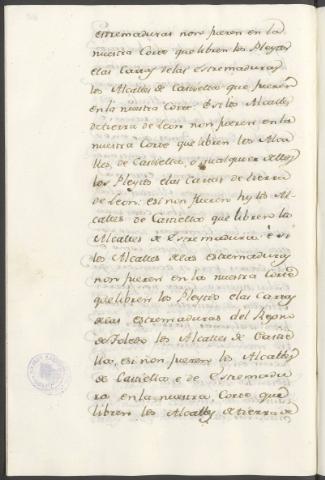 estremaduras non fueren en la
nuestra Corte que libren los Pleytos
e las Cartas de las estremaduras
los Alcalles de Castiella que fueren
en la nuestra Corte. E si los Alcalles
de tierra de Leon non fueren en la
nuestra Corte que libren los Alca
lles, de Castiella, o qualquier dellos
los Pleytos e las Cartas de tierra
de Leon: e si non fueren hy los Al-
calles de Castiella que libren los
Alcalles de Estremadura: e si
los Alcalles de las estremaduras
non fueren en la nuestra Corte
que libren los Pleytos e las Cartas
de las estremaduras del Regno
de Toledo los Alcalles de Castie
lla, e si non fueren los Alcalles
de Castiella e de Estremadu
ra en la nuestra Corte que
libren los Alcalles de tierra de